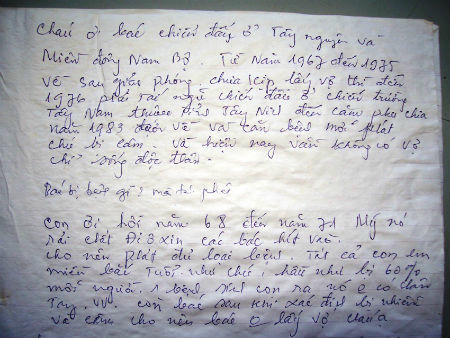 Cháu ơi bác chiến đấu ở Tây nguyên và
Miền đông Nam Bộ. Từ Năm 1967 đến 1975
về sau giải phóng chưa kịp lấy vợ thì đến
1976 phải Tái ngũ chiến đấu ở chiến trường
Tây Nam thuộc Tây Ninh đến căm pu chia
năm 1983 được về và căn bệnh mới phát
chỉ bị câm. và hiện nay vẫn không có vợ
chỉ sống độc thân.
Bác bị bệnh gì mà
Con ơi hồi năm 68 đến năm 71 Mỹ nó
rải chất Đi ô xin các bác hít vào.
cho nên phát đủ loại bệnh. Tất cả con em
miền bắc Tuổi như chú, hầu như bị 60%
mỗi người 1 bệnh con ra nó có
Tay, VV. còn bác sau khi xác định bị nhiễm
và câm cho nên bác lấy vợ